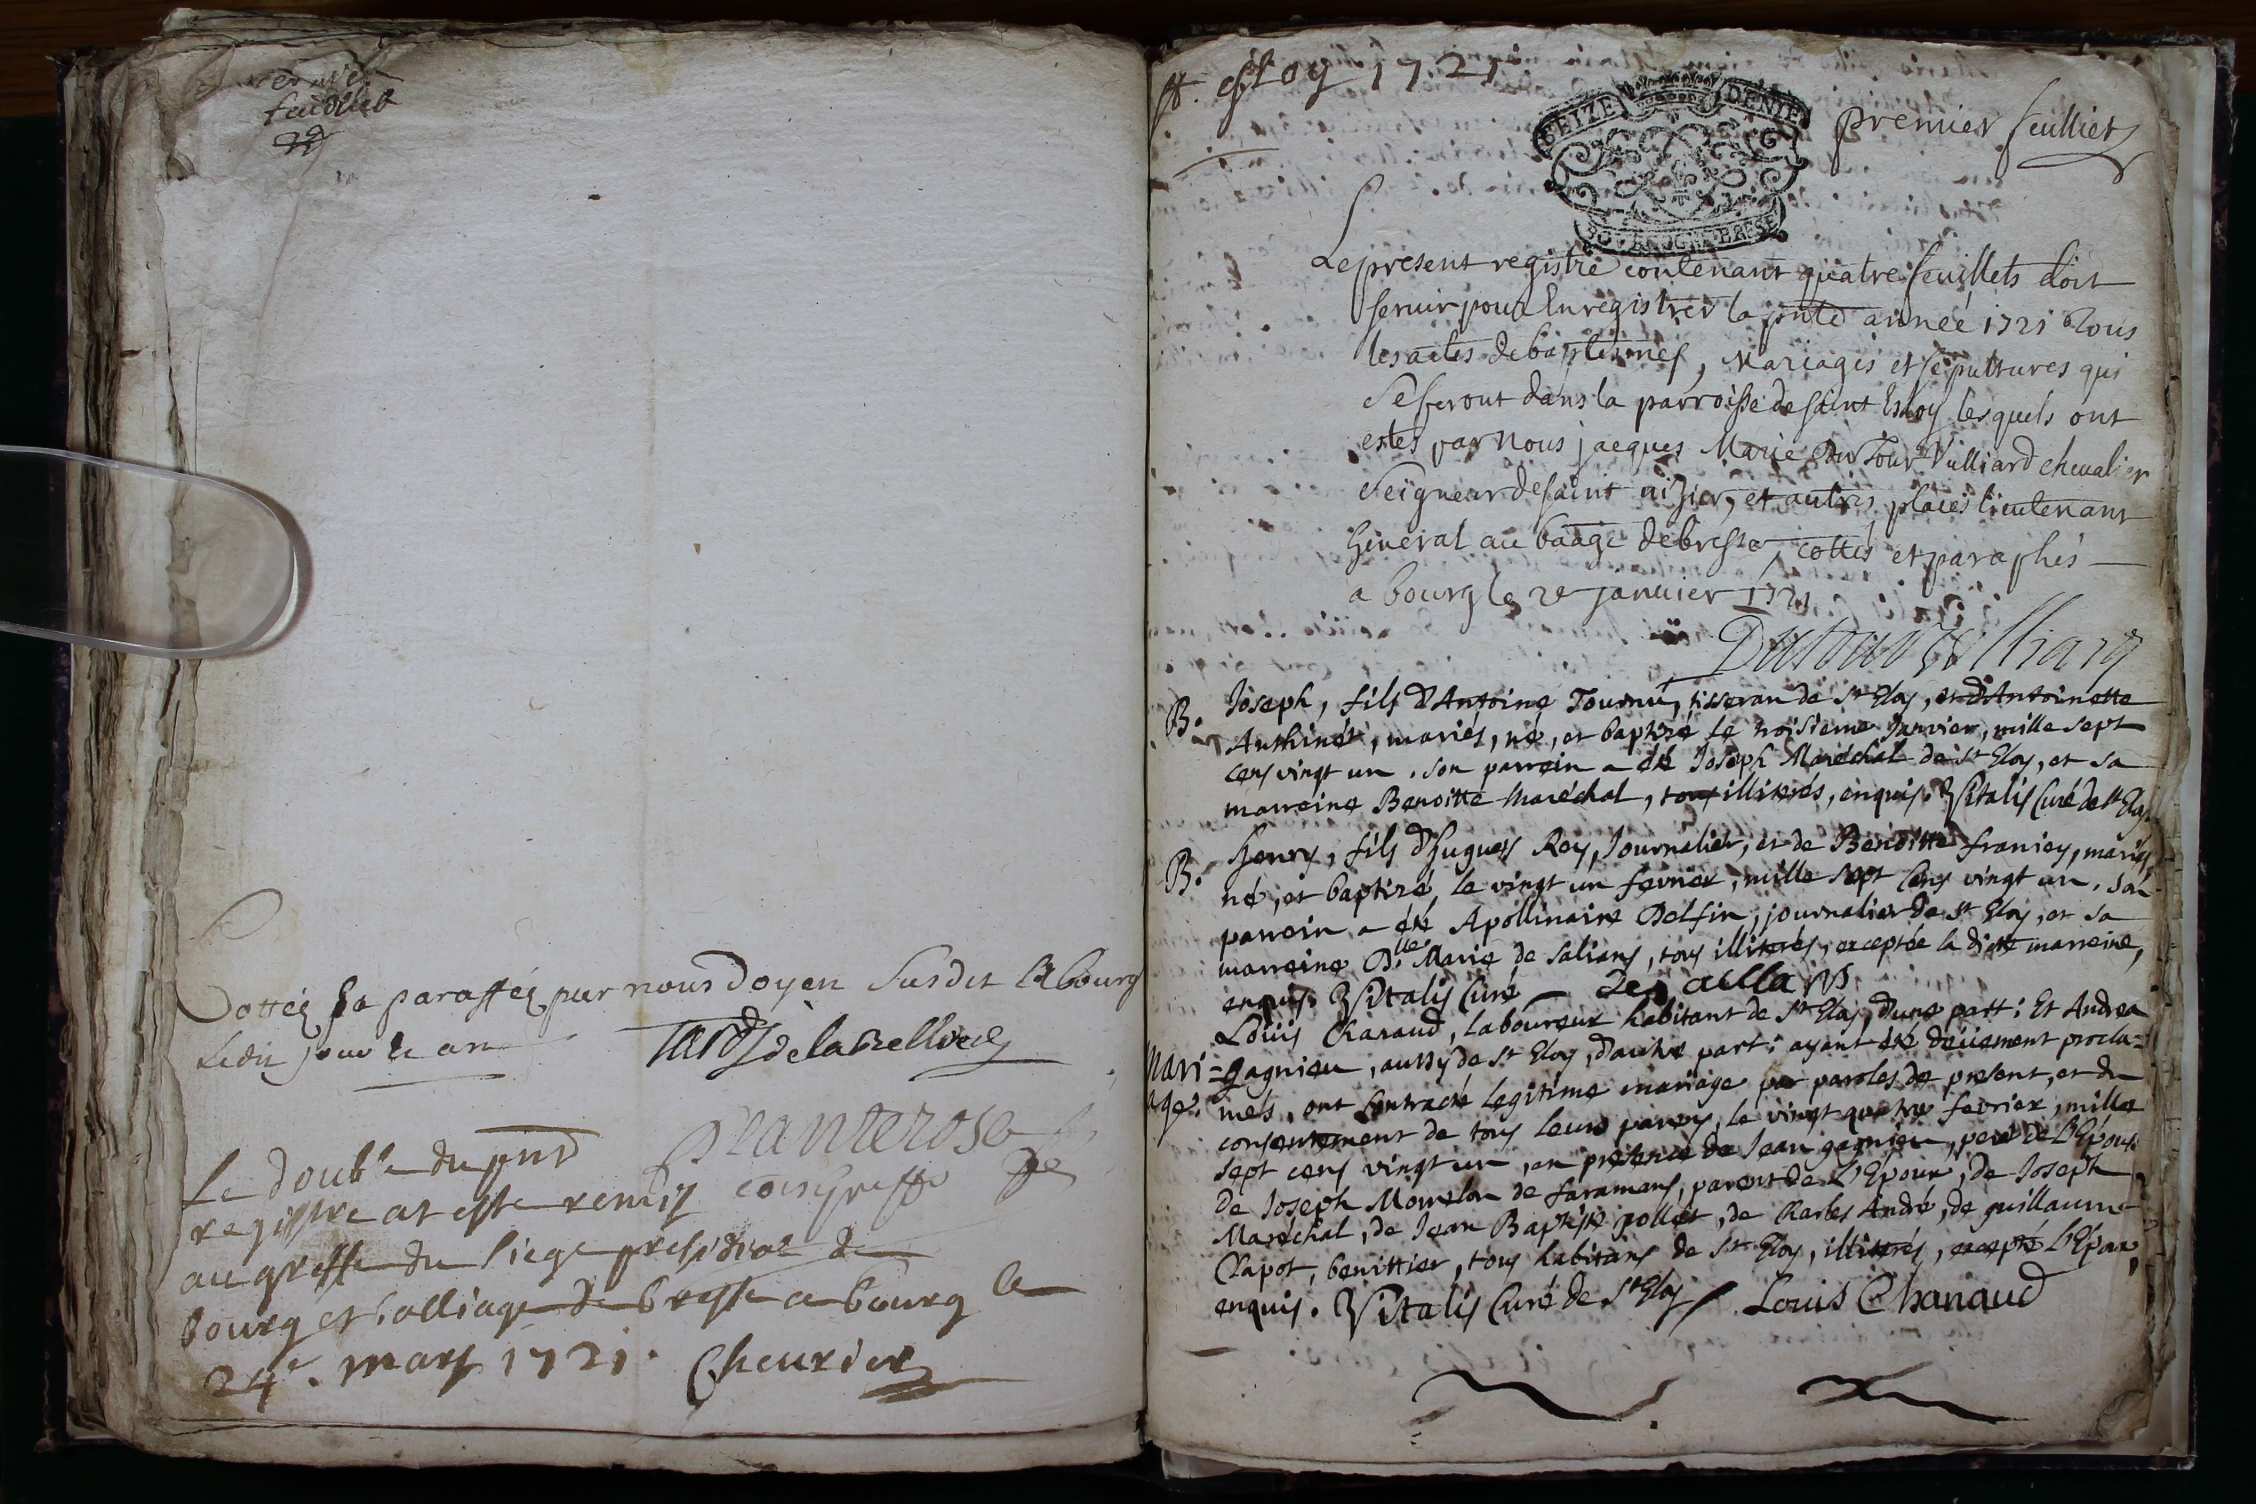 feuillet
Cottéz & paraffez par nous Doyen Susdit A bourg
Ledit jour & an
Tardy de la Belliere
Le double du pnt
registre at este remis
au greffe du Siege presidial de
bourg et balliage de bresse a bourg le
24e. mars 1721. Cheurier
St. esloy 1721
SEIZE DENIE
BOURGOG ET BRESSE
premier feulliet
Le present registre contenant quatre feuillets doit
servir pour Enregistrer la pnte année 1721 Tous
les actes de baptesmes, Mariages et sepultures qui
Se feront dans la parroisse de saint Esloy lesquels ont
estes par Nous jacques Marie Du Tour Vulliard chevalier
Seigneur de saint nizier, et autres places lieutenant
General au baage de bresse, cottés et paraphés
a bourg le 2e janvier 1721
Dutour Vulliard
B. Joseph, fils d'Antoine Tournu, tisseran de St Eloy, et d'Antoinette
Anthinet, mariés, né, et baptizé le troisieme Janvier, mille sept
cens vingt un. son parrein a été Joseph Maréchal de St Eloy, et sa
marreine Benoitte Maréchal, tous illiterés, enquis. Vitalis Curé de St Eloy
B. Henry, fils d'Hugues Roy, Journalier, et de Benoitte franiey, mariés
né, et baptizé, le vingt un fevrier, mille sept Cens vingt un. son
parrein a été Apollinaire Delfin, journalier de St Eloy, et sa
marreine Dlle Marie de Salians, tous illiterés, exceptée la ditte marreine,
enquis. Vitalis Curé
Louis Chanaud, laboureur habitant de St Eloy, d'une part; Et Andrea
Mari= gagnieu, aussy de St Eloy, d'autre part; ayant été deüement procla=
ages. més, ont Contracté legitime mariage par paroles de present, et du
consentement de tous leurs parens, le vingt quatre fevrier, mille
sept cens vingt un, en presence de Jean gagnieu, pere de L'Epouse
de Joseph Mornelon de faramans, parent de L'Epoux, de Joseph
Maréchal, de Jean Baptiste pollet, de Charles André, de guillaume
Chapot, benittier, tous habitans de St Eloy, illiterés, excepté L'Epoux,
enquis. Vitalis Curé de St Eloy Louis Chanaud